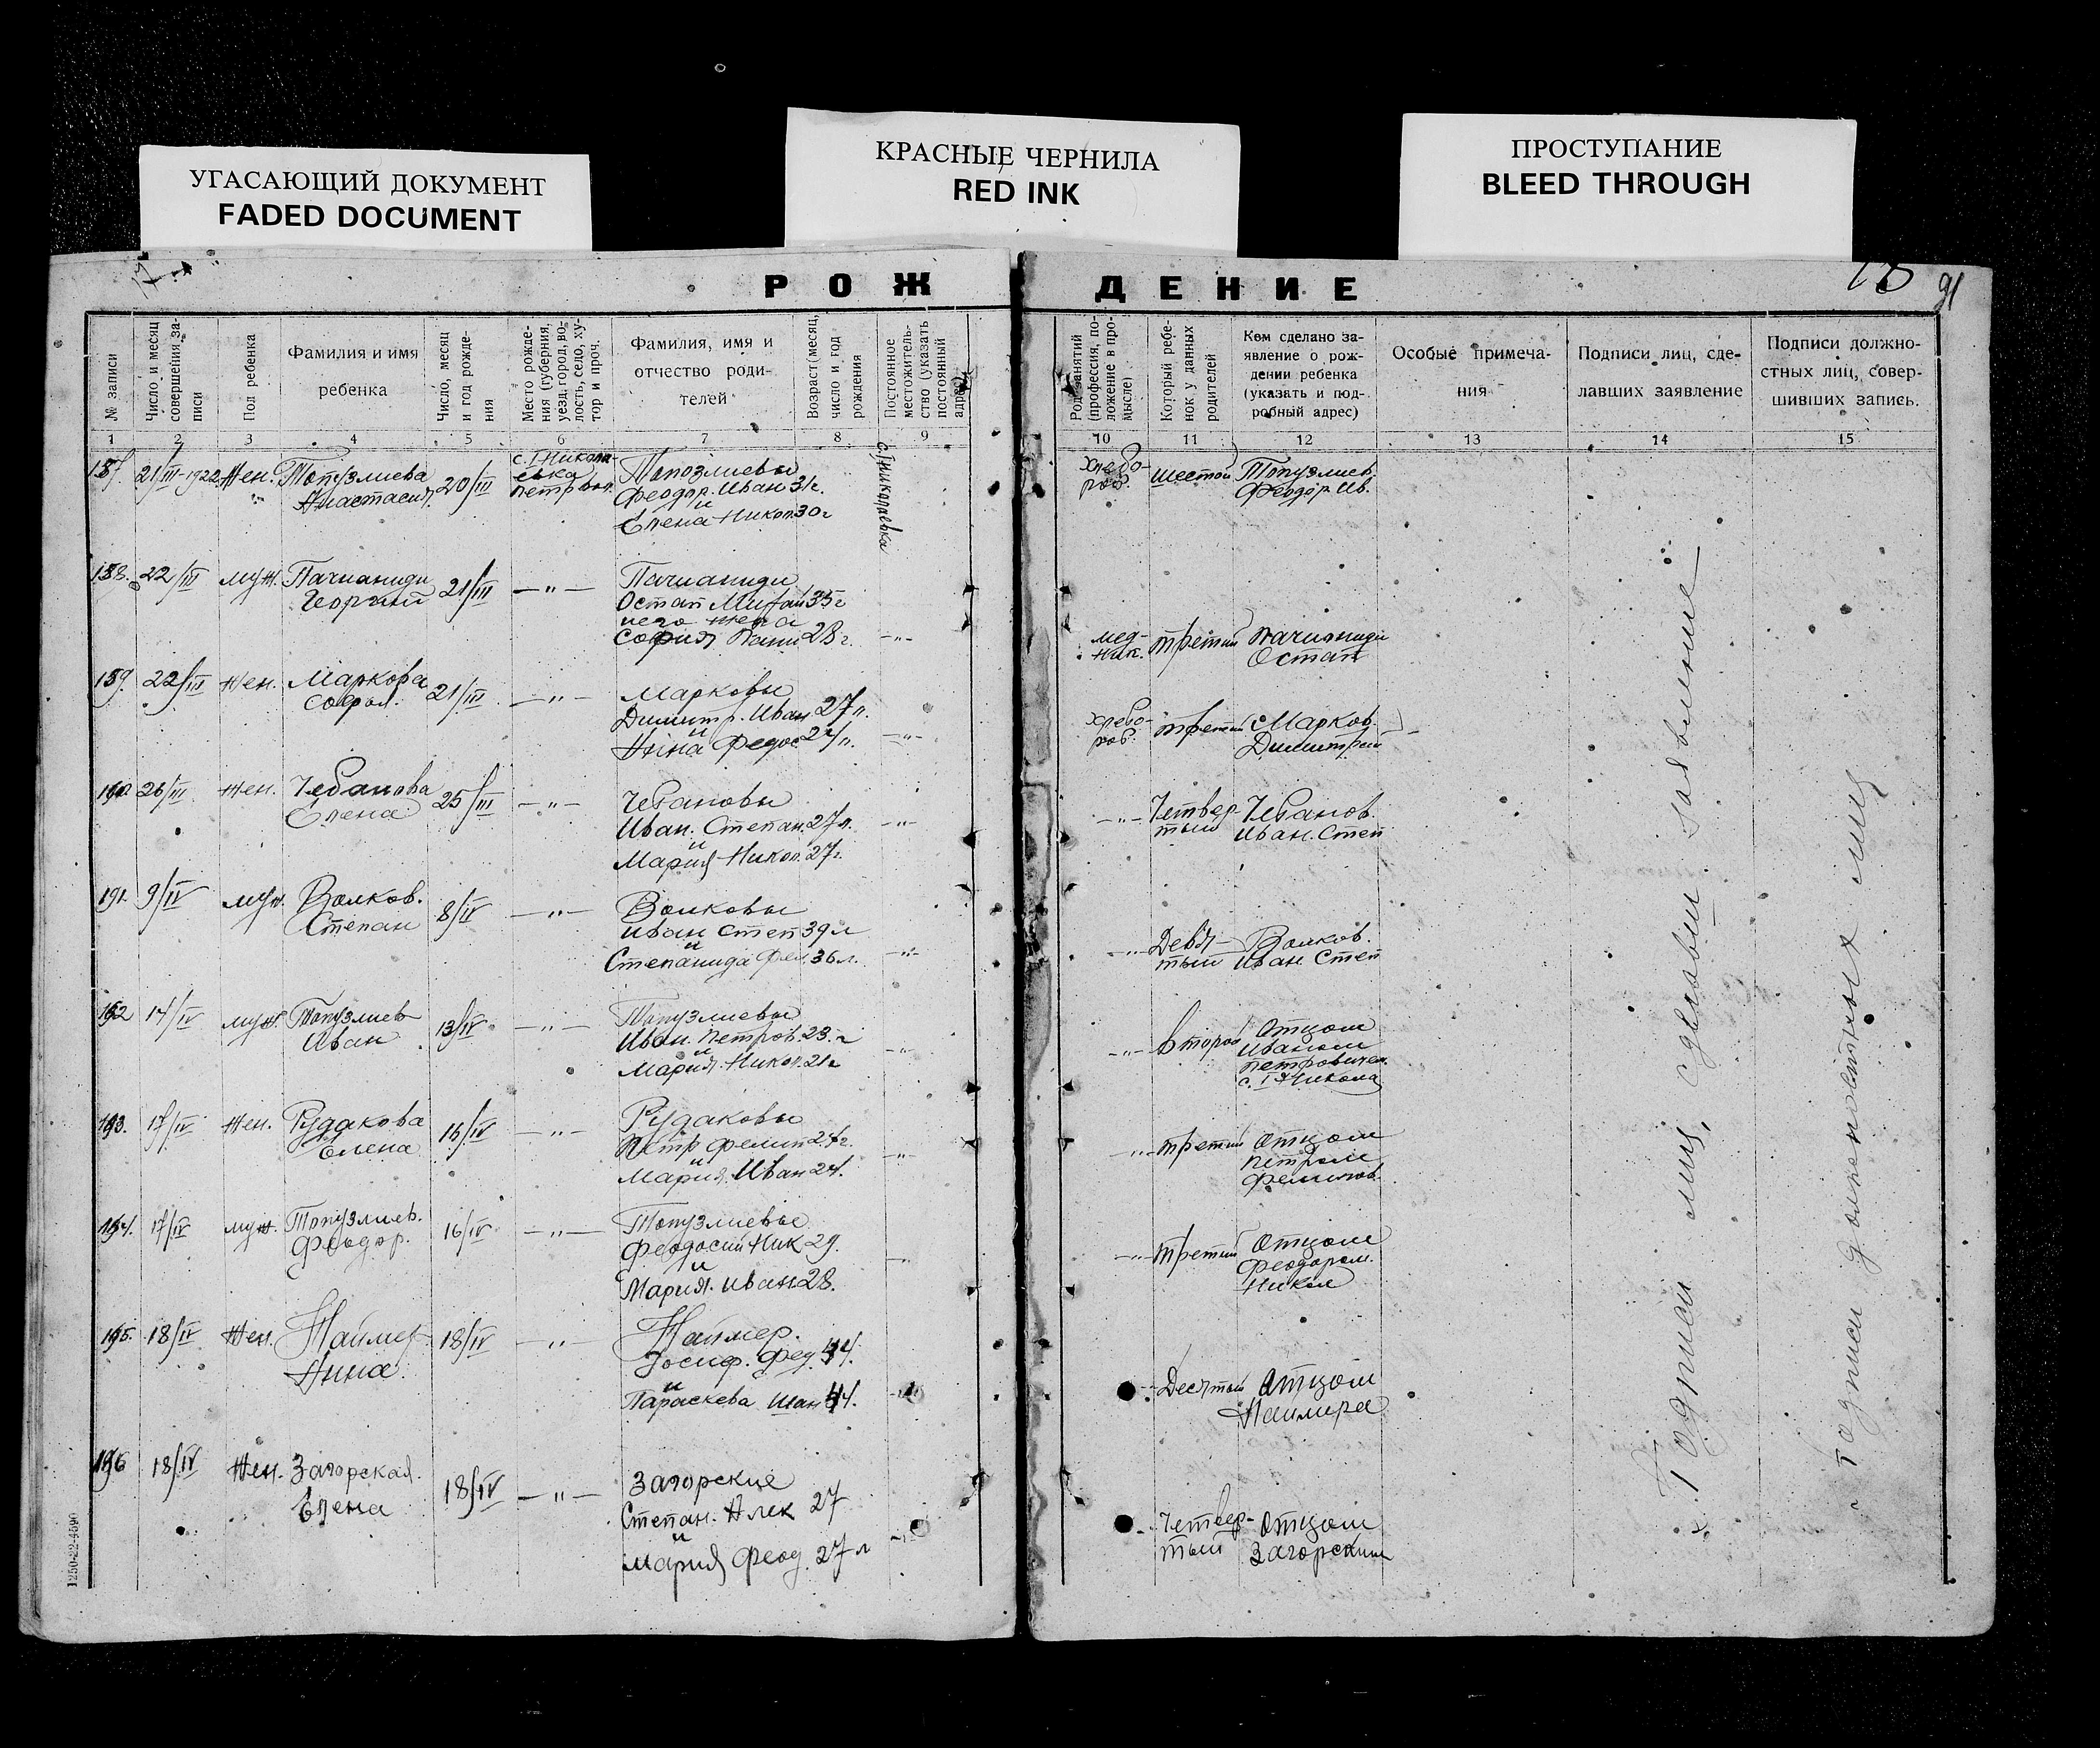 УГАСАЮЩИЙ ДОКУМЕНТ
FADED DOCUMENT
КРАСНЫЕ ЧЕРНИЛА
RED INK
ПРОСТУПАНИЕ
BLEED THROUGH
РОЖДЕНИЕ
91
№ записи
Число и месяц
совершения за-
писи
Пол ребенка
Фамилия и имя
ребенка
Число, месяц
и год рожде-
ния
Место рожде-
ния (губерния,
уезд, город, во-
лость, село, ху-
тор и проч.
Фамилия, имя и
отчество роди-
телей
Возраст месяц,
число и год
рождения
Постоянное
местожитель-
ство (указать
постоянный
адрес)
Род занятий
(профессия, по-
ложение в про-
мысле)
Который ребе-
нок у данных
родителей
Кем сделано за-
явление о рож-
дении ребенка
(указать и под-
робный адрес)
Особые примеча-
ния
Подписи лиц, сде-
лавших заявление
Подписи должно-
стных лиц, совер-
шивших запись.
1 2 3 4 5 6 7 8 9 10 11 12 13 14 15
187. 21/III-1922 Жен. Топузлиева
Анастасия. 20/III
с. I Никола-
евка
Петр вол.
Топозлиевы
Феодор. Иван 31 г.
и
Елена Никол 30 г
с. I Николаевка
хлебо-
роб.
шестой
Топузлиев
Феодор Ив.
188. 22/III муж. Пачианиди
Георгий 21/III — " —
Пачианиди
Остап Михай 35 г
и его жена
София 28 г. — " —
мед-
ник.
третий
Пачианиди
Остап
189. 22/III Жен. Маркова
Софья. 21/III — " —
Марковы
Димитр. Иван 27 л.
и
Нина Федос — " —
хлебо-
роб.
третий
Марков.
Димитрий
190. 26/III Жен. Чебанова
Елена 25/III — " —
Чебановы
Иван. Степан. 27 л. — " —
и
Мария Никол. 27 г.
— " — Четвер-
тый
Чебанов.
Иван. Степ
191. 9/IV муж. Волков.
Степан 8/IV — " —
Волковы
Иван Степ 39 л
и
Степанида 36 л. — " —
— " — Девя-
тый
Волков.
Иван Степ
192 17/IV муж. Топузлиев
Иван 13/IV — " —
Топузлиевы
Иван. Петров. 23. г
и
Мария. Никол. 21 г — " —
— " — Второй
Отцом
Иваном
Петровичем.
с. I Никола
193. 17/IV Жен. Рудакова
Елена 16/IV — " —
Рудаковы
Петр Филип 24 г.
и
Мария. Иван 24. — " —
— " — третий
Отцом
Петром
Филипов.
194. 17/IV муж. Топузлиев.
Феодор. 16/IV — " —
Топузлиевы
Феодосий Ник 29.
и
Мария. Иван 28.
— " — третий
Отцом
Феодором.
Никол
195. 18/IV Жен. Наймер
Нина 18/IV — " —
Наймер.
Иосиф. Фед. 44.
и
Параскева 44. — " —
— " — Десятый
Отцом
Наймера
196 18/IV Жен. Загорская.
Елена 18/IV — " —
Загорские
Степан. Алек 27
и
Мария Феод. 27 л — " —
Четвер-
тый
Отцом
Загорским
Подписи лиц, сделавш. заявление
Подписи должностных лиц
1250-22-4590